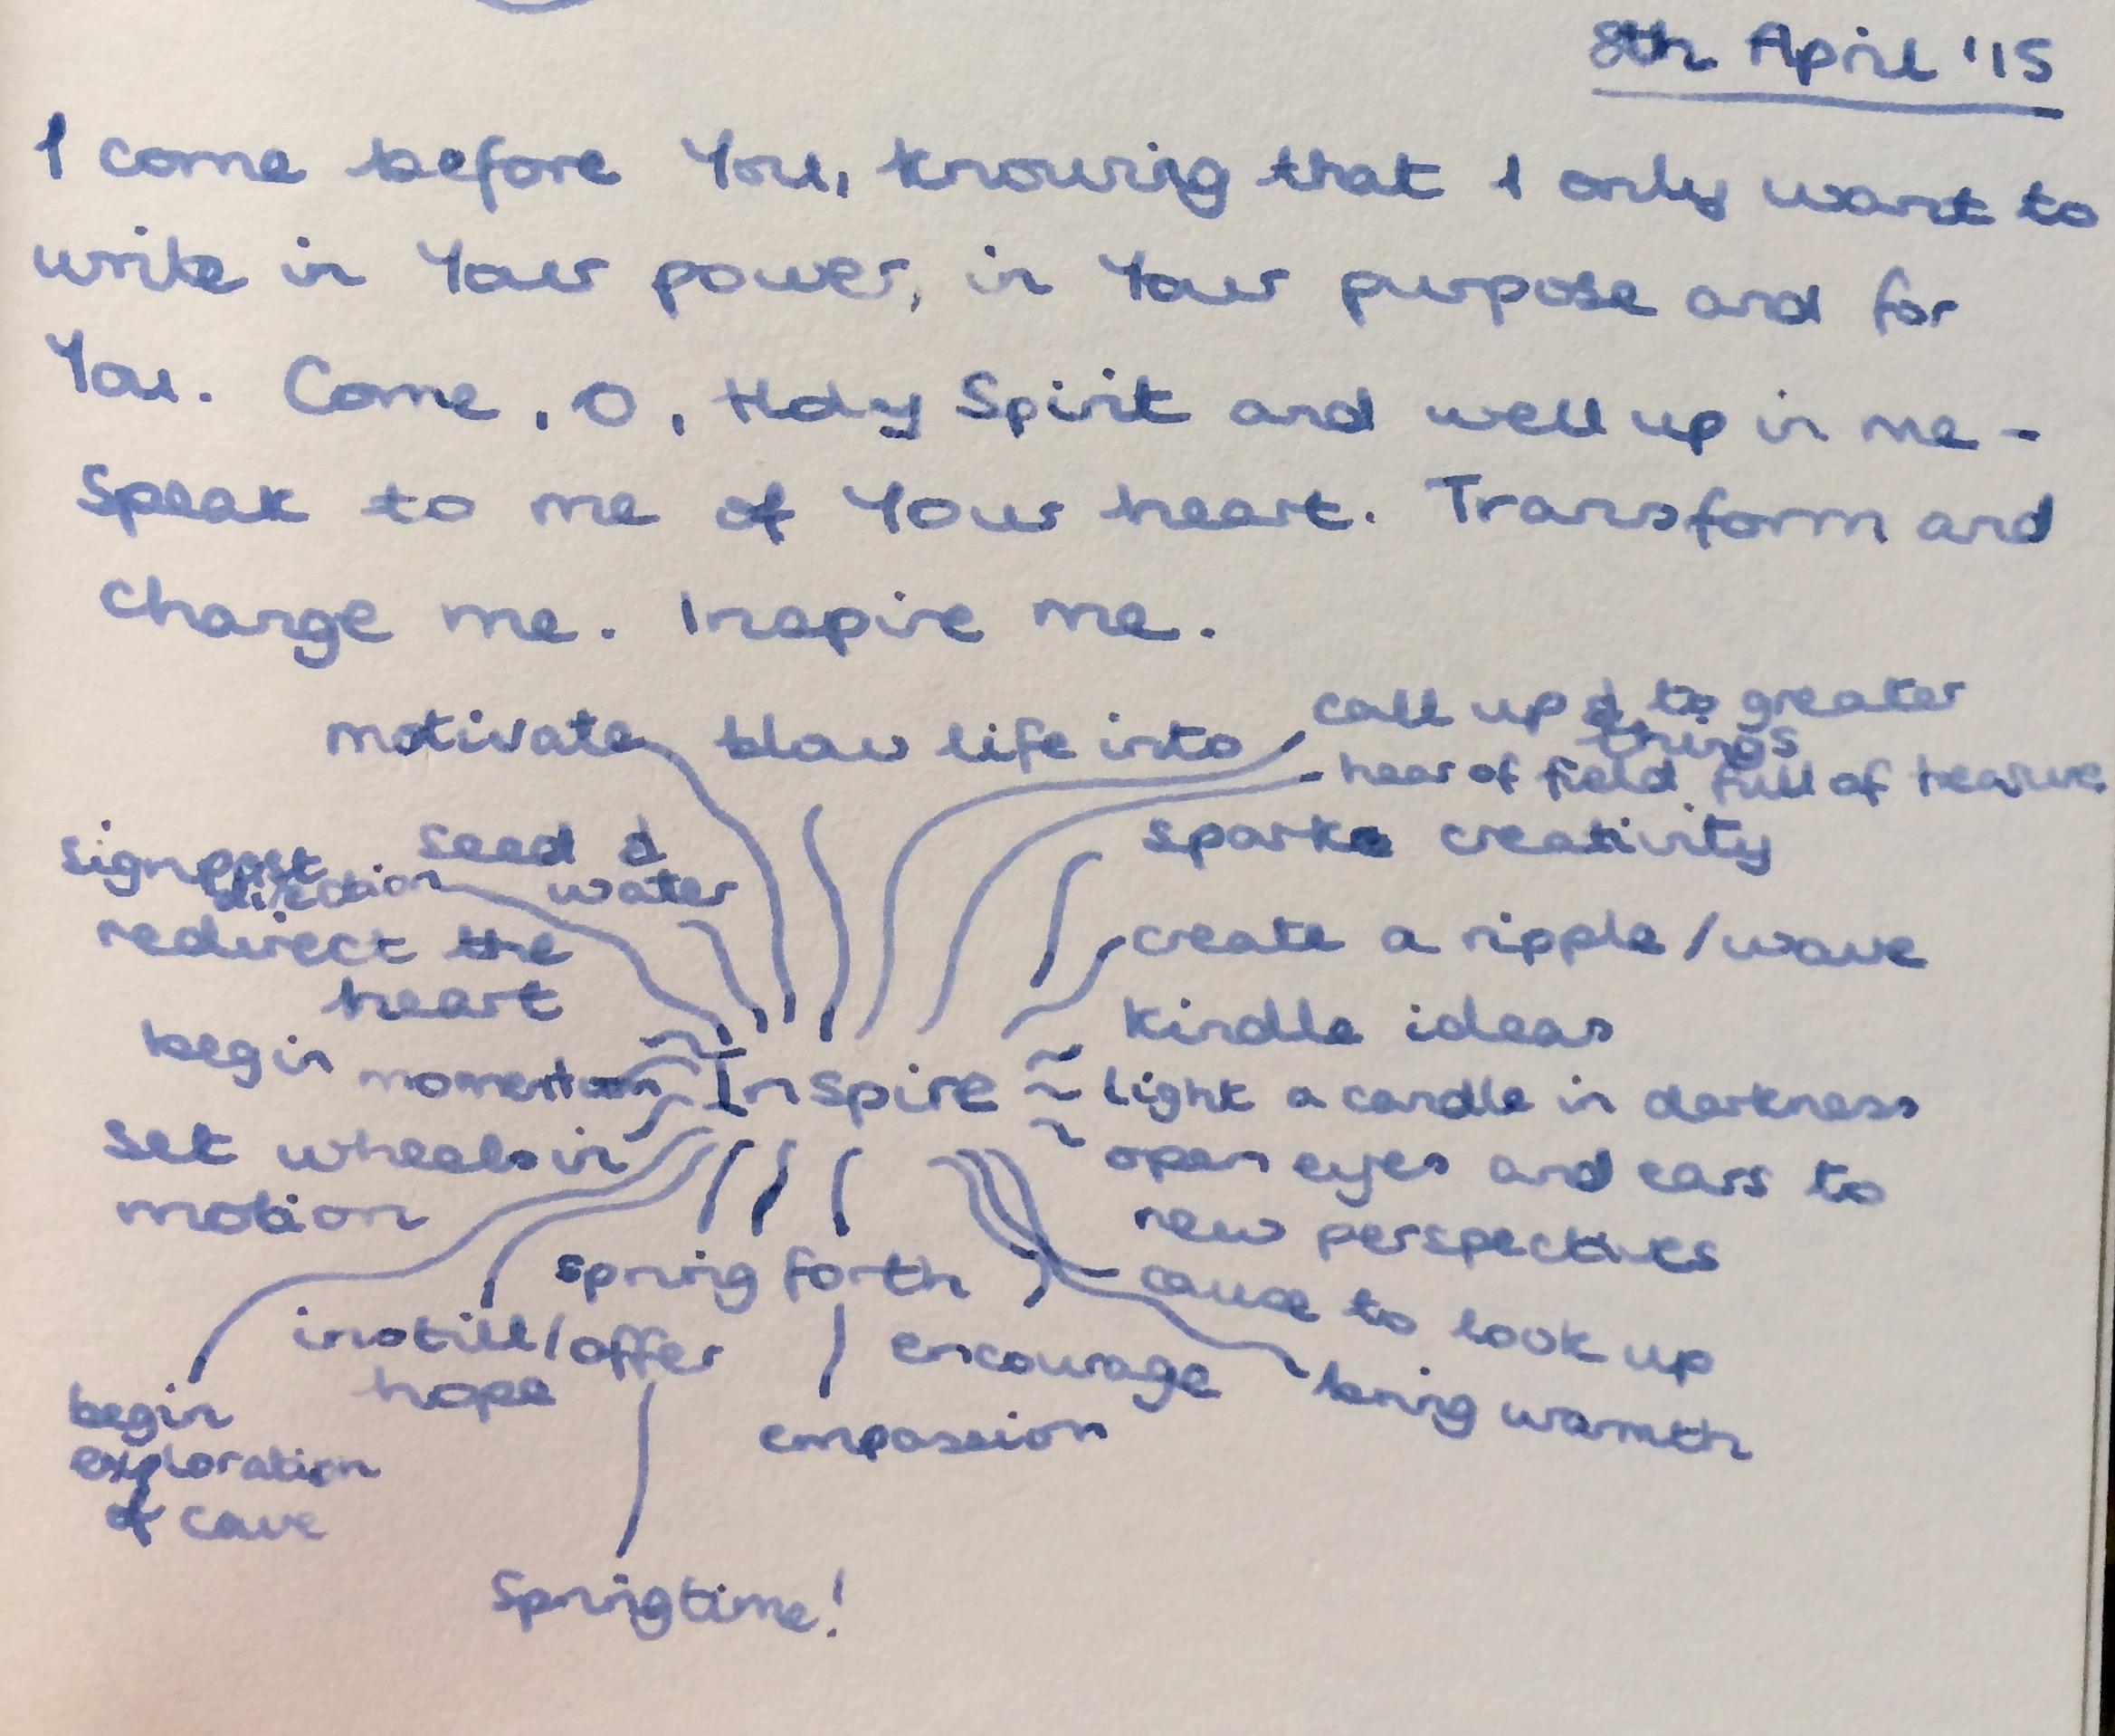 8th April '15
I come before You, knowing that I only want to
write in Your power, in Your purpose and for
You. Come, O, Holy Spirit and well up in me -
Speak to me of Your heart. Transform and
change me. Inspire me.
call up & to greater
things
motivate blow life into
hear of field full of treasure
seed &
water
sparks creativity
signpost
direction
redirect the
heart
create a ripple/wave
kindle ideas
begin momentum
Inspire
light a candle in darkness
set wheels in
motion
open eyes and ears to
new perspectives
spring forth
cause to look up
instill/offer
hope
encourage
bring warmth
begin
exploration
of cave
empassion
Springtime!